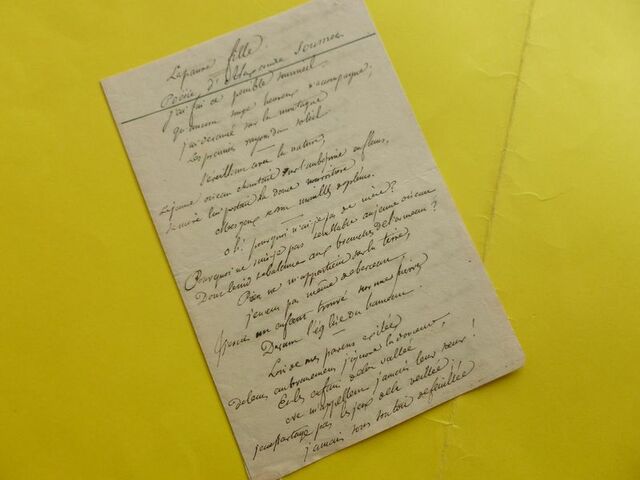 La pauvre fille.
Poësie d'Alexandre Soumet
J'ai fui ce penible sommeil
qu'aucun songe heureux n'accompagne;
j'ai devancé sur la montagne
Les premiers rayons du soleil
S'éveillant avec la nature,
Le jeune oiseau chantait sur l'aubépine en fleurs,
Sa mère lui portait la douce nourriture
Mes yeux se sont mouillés de pleurs.
Oh! pourquoi n'ai-je pas de mère?
Pourquoi ne suis-je pas semblable au jeune oiseau
Dont le nid se balance aux branches de l'ormeau?
Rien ne m'appartient sur la terre,
je n'eus pas même de berceau
Et je suis un enfant trouvé sur une pierre
Devant l'église du hameau.
Loin de mes parens exilée
De leurs embrassemens j'ignore la douceur,
Et les enfans de la vallée
Ne m'appellent jamais leur sœur!
je ne partage pas les jeux de la veillée;
jamais sous son toit de feuillée